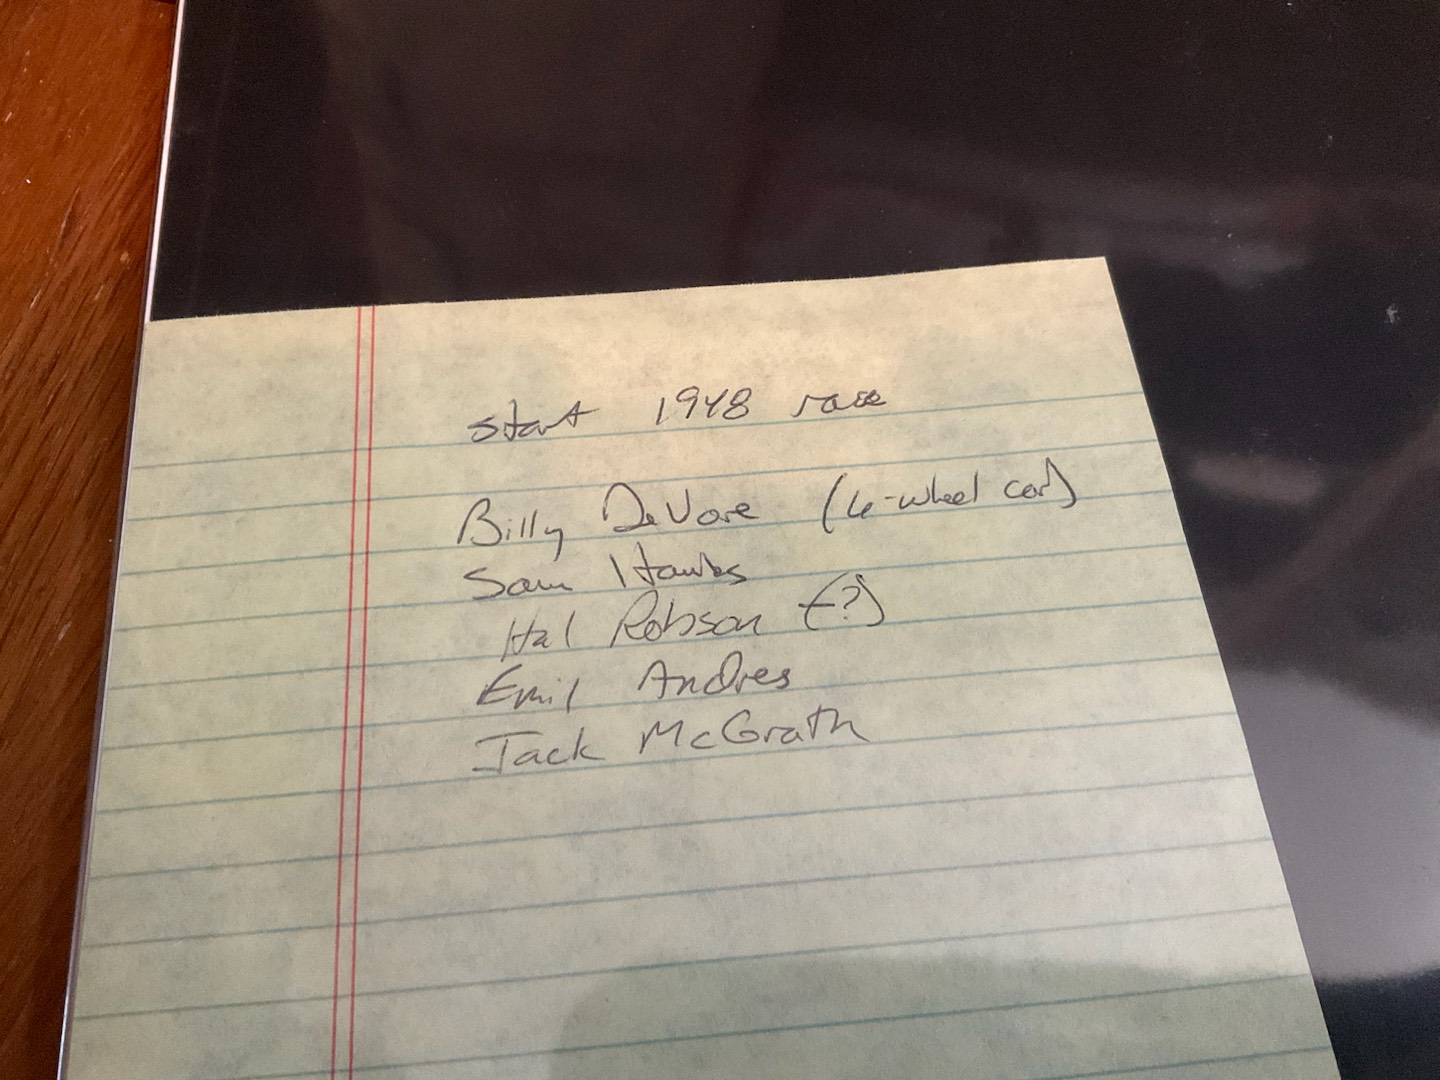 start 1948 race
Billy DeVore (6-wheel car)
Sam Hawks
Hal Robson (?)
Emil Andres
Jack McGrath